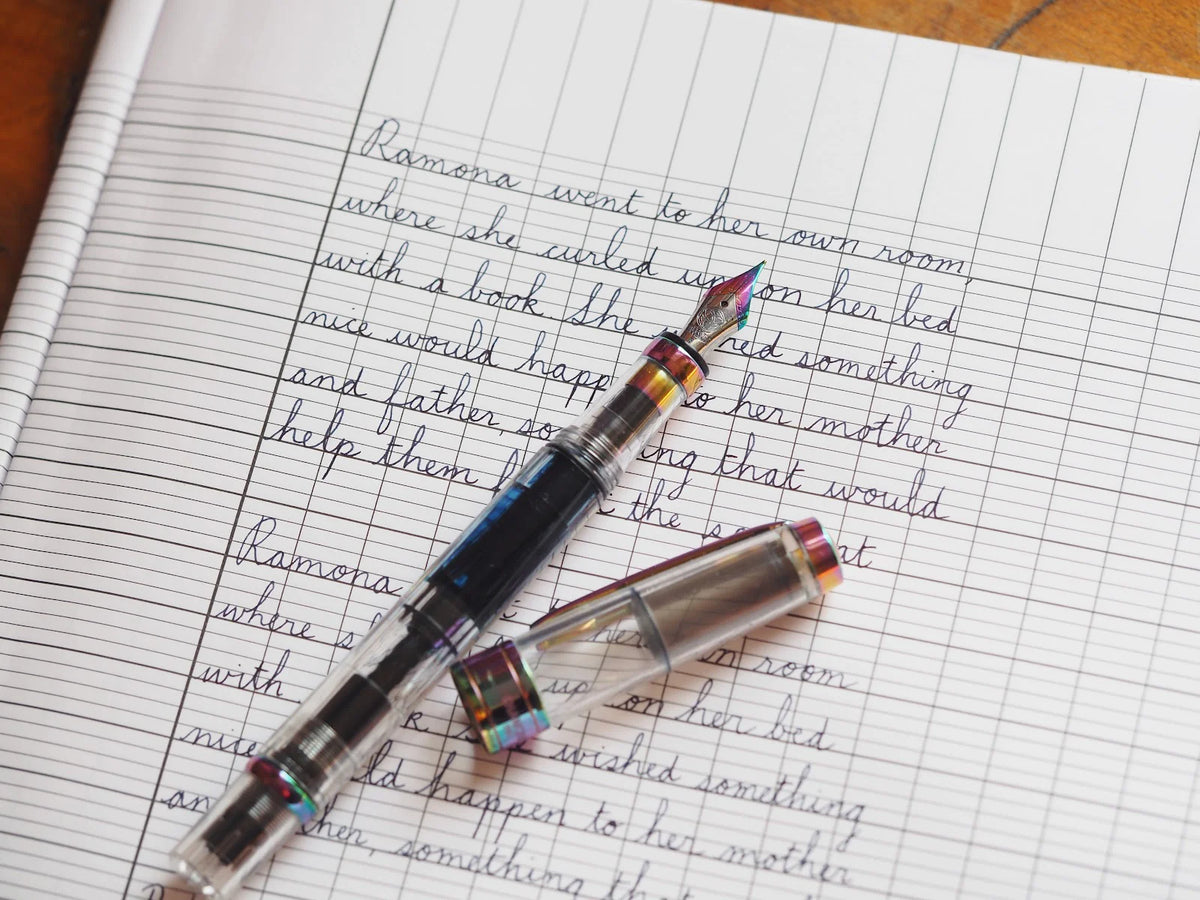 Ramona went to her own room,
where she curled up on her bed
with a book. She something
nice would to her mother
and father, that would
help them the
Ramona room
where up on her bed
with wished something
nice happen to her mother
something